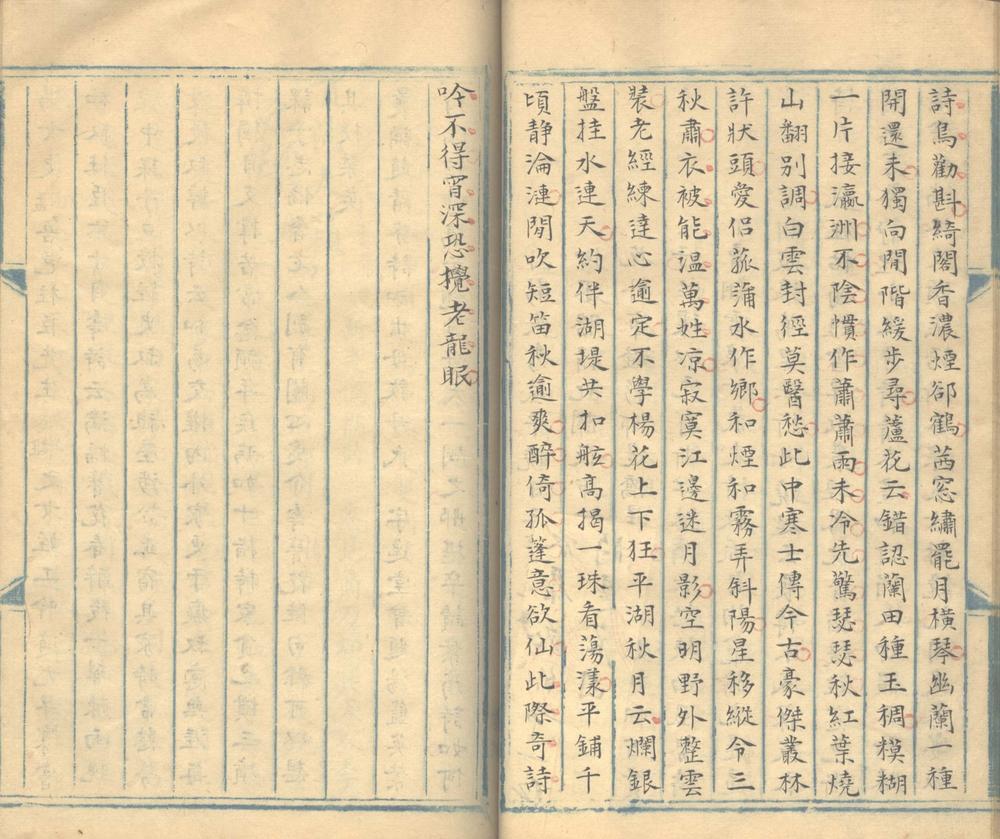 詩鳥勸斟綺閣香濃煙郤鶴茜窓繡罷月橫琴幽蘭一種
開還未獨向閒階緩步尋蘆花云錯認蘭田種玉稠糢糊
一片接瀛洲不陰慣作蕭蕭雨未冷先驚瑟瑟秋紅葉燒
山翻別調白雲封徑莫醫愁此中寒士傳今古豪傑叢林
許狀頭愛侶菰蒲水作鄉和煙和霧弄斜陽星移縱令三
秋肅衣被能溫萬姓凉寂寞江邊迷月影空明野外整雲
裝老經練達心逾定不學楊花上下狂平湖秋月云爛銀
盤挂水連天約伴湖堤共扣舷高揭一珠看蕩漾平鋪千
頃静淪漣閒吹短笛秋逾爽醉倚孤篷意欲仙此際奇詩
吟不得宵深恐攪老龍眠